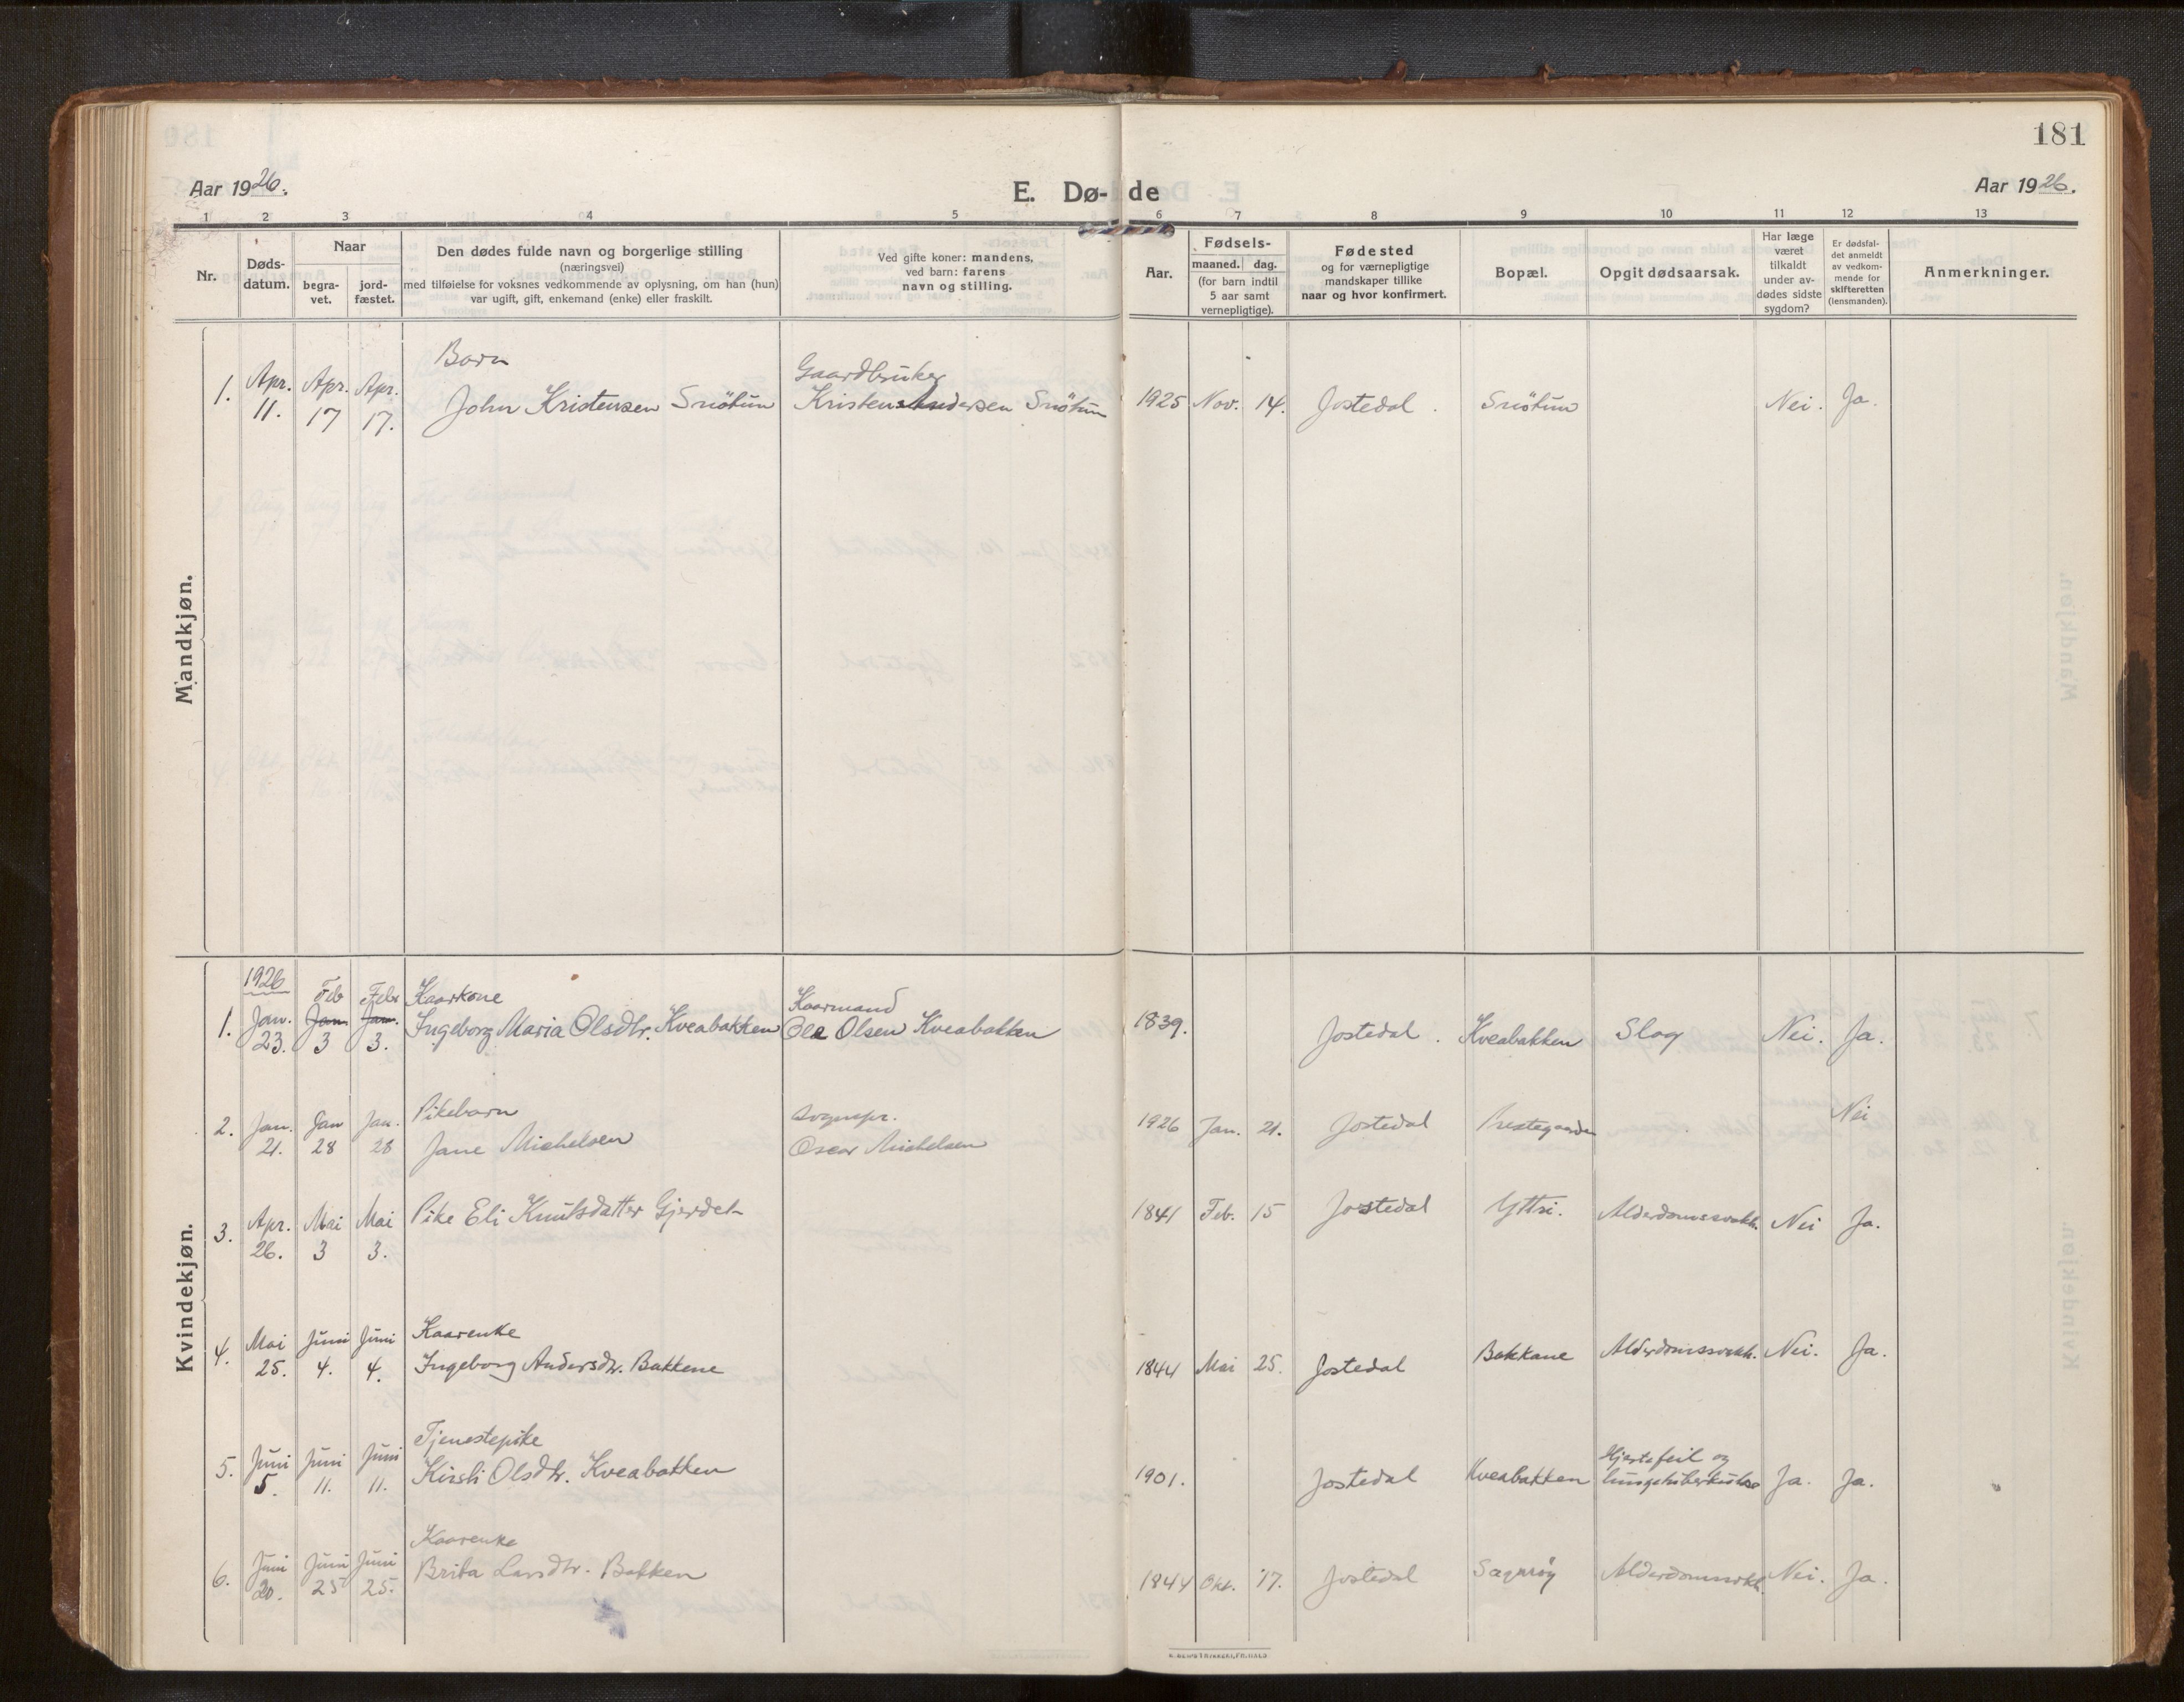 181
Aar 1926.
E. Dø- de
Aar 1926.
1 2 3 4 5 6 7 8 9 10 11 12 13
Nr.
Døds-
datum.
Naar
begra-
vet.
jord-
fæstet.
Den dødes fulde navn og borgerlige stilling
(næringsvei)
med tilføielse for voksnes vedkommende av oplysning, om han (hun)
var ugift, gift, enkemand (enke) eller fraskilt.
Ved gifte koner: mandens,
ved barn: farens
navn og stilling.
Aar.
Fødsels-
maaned. dag.
(for barn indtil
5 aar samt
vernepligtige).
Fødested
og for værnepligtige
mandskaper tillike
naar og hvor konfirmert.
Bopæl.
Opgit dødsaarsak.
Har læge
været
tilkaldt
under av-
dødes sidste
sygdom?
Er dødsfal-
det anmeldt
av vedkom-
mende for
skifteretten
(lensmanden).
Anmerkninger.
Mandkjøn.
Barn Gaardbruker
1. Apr. Apr. Apr. John Kristensen Snøtun Kristen Andersen Snøtun 1925 Nov. 14. Jostedal. Snøtun Nei. Ja.
11. 17 17.
Kvindekjøn.
1926 Feb Febr Kaarkone Kaarmand
1. Jan. Jan. Jan. Ingeborg Maria Olsdtr. Kveabakken Ole Olsen Kveabakken 1839. Jostedal. Kveabakken Slag Nei. Ja.
23. 3 3.
Pikebarn Sognepr.
2. Jan. Jan Jan. Jane Michelsen Oscar Michelsen 1926 Jan. 21. Jostedal Prestegaarden Nei
21. 28 28
3. Apr. Mai Mai Pike Eli Knutsdatter Gjerdet 1841 Feb. 15 Jostedal Yttri. Alderdomssvakh. Nei Ja.
26. 3 3.
Kaarenke
4. Mai Juni Juni Ingeborg Andersdtr. Bakkene 1844 Mai 25. Jostedal Bakkane Alderdomssvakh. Nei. Ja.
25. 4. 4.
Tjenestepike Hjertefeil og
5. Juni Juni Juni Kirsti Olsdtr. Kveabakken 1901. Jostedal Kveabakken lungetuberkulose Ja. Ja.
5. 11. 11.
Kaarenke
6. Juni Juni Juni Brita Larsdtr. Bakken 1844 Okt. 17. Jostedal Sagarøy Alderdomssvkh. Nei. Ja.
20. 25 25.